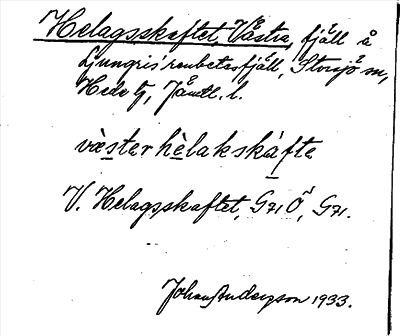 Helagsskaftet, Västra, fjäll å
Ljungris' renbetesfjäll, Storsjö sn,
Hede tg, Jämtl. l.
väster hèlakskáfte
V. Helagsskaftet, G71 Ö, G71.
Johan Anderson 1933.